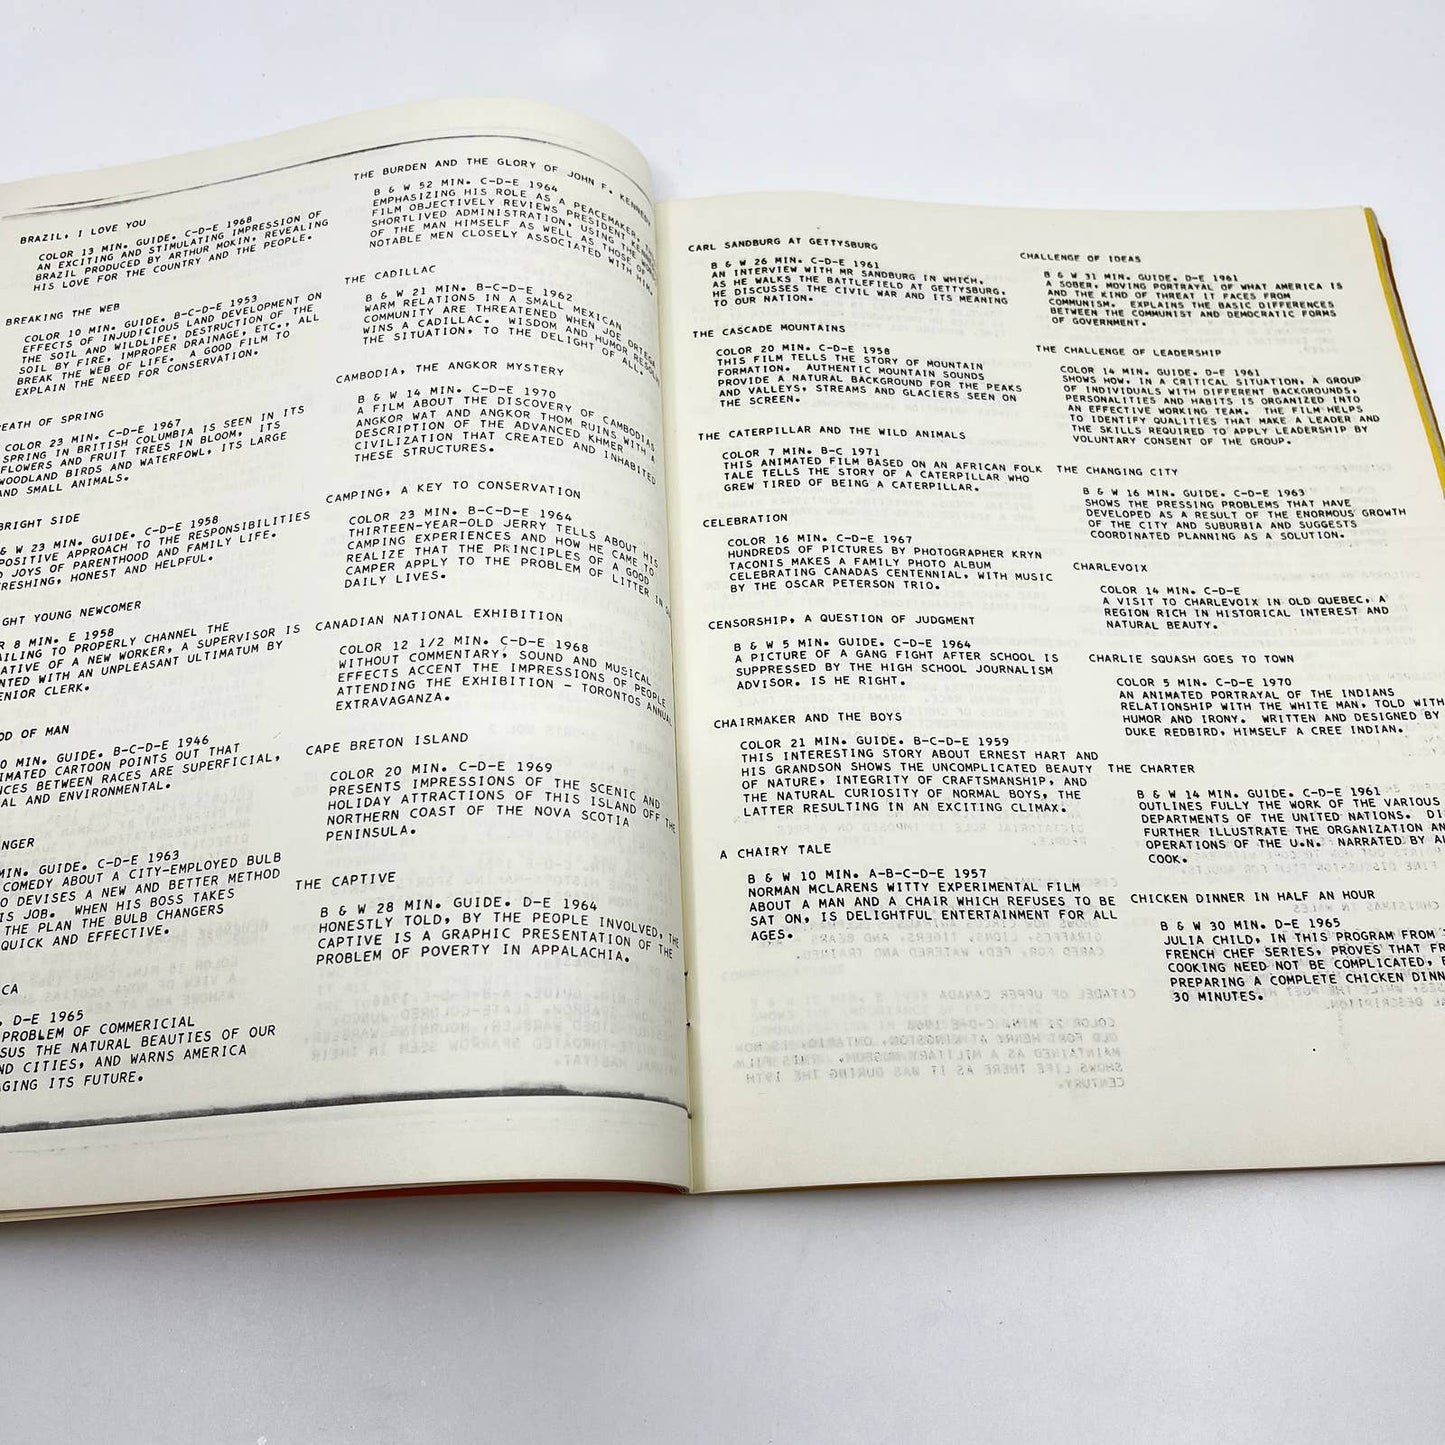 BRAZIL, I LOVE YOU
COLOR 13 MIN. GUIDE. C-D-E 1968
AN EXCITING AND STIMULATING IMPRESSION OF
BRAZIL PRODUCED BY ARTHUR MOKIN, REVEALING
HIS LOVE FOR THE COUNTRY AND THE PEOPLE.
BREAKING THE WEB
COLOR 10 MIN. GUIDE. B-C-D-E 1953
EFFECTS OF INJUDICIOUS LAND DEVELOPMENT ON
THE SOIL AND WILDLIFE, DESTRUCTION OF THE
SOIL BY FIRE, IMPROPER DRAINAGE, ETC., ALL
BREAK THE WEB OF LIFE. A GOOD FILM TO
EXPLAIN THE NEED FOR CONSERVATION.
EATH OF SPRING
COLOR 23 MIN. C-D-E 1967
SPRING IN BRITISH COLUMBIA IS SEEN IN ITS
FLOWERS AND FRUIT TREES IN BLOOM, ITS
WOODLAND BIRDS AND WATERFOWL, ITS LARGE
AND SMALL ANIMALS.
BRIGHT SIDE
& W 23 MIN. GUIDE. C-D-E 1958
POSITIVE APPROACH TO THE RESPONSIBILITIES
D JOYS OF PARENTHOOD AND FAMILY LIFE.
FRESHING, HONEST AND HELPFUL.
GHT YOUNG NEWCOMER
R 8 MIN. E 1958
AILING TO PROPERLY CHANNEL THE
IATIVE OF A NEW WORKER, A SUPERVISOR IS
NTED WITH AN UNPLEASANT ULTIMATUM BY
ENIOR CLERK.
OD OF MAN
0 MIN. GUIDE. B-C-D-E 1946
IMATED CARTOON POINTS OUT THAT
NCES BETWEEN RACES ARE SUPERFICIAL,
AL AND ENVIRONMENTAL.
NGER
MIN. GUIDE. C-D-E 1963
COMEDY ABOUT A CITY-EMPLOYED BULB
O DEVISES A NEW AND BETTER METHOD
IS JOB. WHEN HIS BOSS TAKES
THE PLAN THE BULB CHANGERS
QUICK AND EFFECTIVE.
ICA
. D-E 1965
PROBLEM OF COMMERICIAL
SUS THE NATURAL BEAUTIES OF OUR
ND CITIES, AND WARNS AMERICA
AGING ITS FUTURE.
THE BURDEN AND THE GLORY OF JOHN F. KENNEDY
B & W 52 MIN. C-D-E 1964
EMPHASIZING HIS ROLE AS A PEACEMAKER, THE
FILM OBJECTIVELY REVIEWS PRESIDENT KENNEDY
SHORTLIVED ADMINISTRATION, USING THE WORDS
OF THE MAN HIMSELF AS WELL AS THOSE OF
NOTABLE MEN CLOSELY ASSOCIATED WITH HIM.
THE CADILLAC
B & W 21 MIN. B-C-D-E 1962
WARM RELATIONS IN A SMALL MEXICAN
COMMUNITY ARE THREATENED WHEN JOE ORTEGA
WINS A CADILLAC. WISDOM AND HUMOR RESOLVE
THE SITUATION, TO THE DELIGHT OF ALL.
CAMBODIA, THE ANGKOR MYSTERY
B & W 14 MIN. C-D-E 1970
A FILM ABOUT THE DISCOVERY OF CAMBODIAS
ANGKOR WAT AND ANGKOR THOM RUINS WITH A
DESCRIPTION OF THE ADVANCED KHMER
CIVILIZATION THAT CREATED AND INHABITED
THESE STRUCTURES.
CAMPING, A KEY TO CONSERVATION
COLOR 23 MIN. B-C-D-E 1964
THIRTEEN-YEAR-OLD JERRY TELLS ABOUT HIS
CAMPING EXPERIENCES AND HOW HE CAME TO
REALIZE THAT THE PRINCIPLES OF A GOOD
CAMPER APPLY TO THE PROBLEM OF LITTER IN
DAILY LIVES.
CANADIAN NATIONAL EXHIBITION
COLOR 12 1/2 MIN. C-D-E 1968
WITHOUT COMMENTARY, SOUND AND MUSICAL
EFFECTS ACCENT THE IMPRESSIONS OF PEOPLE
ATTENDING THE EXHIBITION - TORONTOS ANNUAL
EXTRAVAGANZA.
CAPE BRETON ISLAND
COLOR 20 MIN. C-D-E 1969
PRESENTS IMPRESSIONS OF THE SCENIC AND
HOLIDAY ATTRACTIONS OF THIS ISLAND OFF THE
NORTHERN COAST OF THE NOVA SCOTIA
PENINSULA.
THE CAPTIVE
B & W 28 MIN. GUIDE. D-E 1964
HONESTLY TOLD, BY THE PEOPLE INVOLVED, THE
CAPTIVE IS A GRAPHIC PRESENTATION OF THE
PROBLEM OF POVERTY IN APPALACHIA.
CARL SANDBURG AT GETTYSBURG
B & W 26 MIN. C-D-E 1961
AN INTERVIEW WITH MR SANDBURG IN WHICH,
AS HE WALKS THE BATTLEFIELD AT GETTYSBURG,
HE DISCUSSES THE CIVIL WAR AND ITS MEANING
TO OUR NATION.
THE CASCADE MOUNTAINS
COLOR 20 MIN. C-D-E 1958
THIS FILM TELLS THE STORY OF MOUNTAIN
FORMATION. AUTHENTIC MOUNTAIN SOUNDS
PROVIDE A NATURAL BACKGROUND FOR THE PEAKS
AND VALLEYS, STREAMS AND GLACIERS SEEN ON
THE SCREEN.
THE CATERPILLAR AND THE WILD ANIMALS
COLOR 7 MIN. B-C 1971
THIS ANIMATED FILM BASED ON AN AFRICAN FOLK
TALE TELLS THE STORY OF A CATERPILLAR WHO
GREW TIRED OF BEING A CATERPILLAR.
CELEBRATION
COLOR 16 MIN. C-D-E 1967
HUNDREDS OF PICTURES BY PHOTOGRAPHER KRYN
TACONIS MAKES A FAMILY PHOTO ALBUM
CELEBRATING CANADAS CENTENNIAL, WITH MUSIC
BY THE OSCAR PETERSON TRIO.
CENSORSHIP, A QUESTION OF JUDGMENT
B & W 5 MIN. GUIDE. C-D-E 1964
A PICTURE OF A GANG FIGHT AFTER SCHOOL IS
SUPPRESSED BY THE HIGH SCHOOL JOURNALISM
ADVISOR. IS HE RIGHT.
CHAIRMAKER AND THE BOYS
COLOR 21 MIN. GUIDE. B-C-D-E 1959
THIS INTERESTING STORY ABOUT ERNEST HART AND
HIS GRANDSON SHOWS THE UNCOMPLICATED BEAUTY
OF NATURE, INTEGRITY OF CRAFTSMANSHIP, AND
THE NATURAL CURIOSITY OF NORMAL BOYS, THE
LATTER RESULTING IN AN EXCITING CLIMAX.
A CHAIRY TALE
B & W 10 MIN. A-B-C-D-E 1957
NORMAN MCLARENS WITTY EXPERIMENTAL FILM
ABOUT A MAN AND A CHAIR WHICH REFUSES TO BE
SAT ON, IS DELIGHTFUL ENTERTAINMENT FOR ALL
AGES.
CHALLENGE OF IDEAS
B & W 31 MIN. GUIDE. D-E 1961
A SOBER, MOVING PORTRAYAL OF WHAT AMERICA IS
AND THE KIND OF THREAT IT FACES FROM
COMMUNISM. EXPLAINS THE BASIC DIFFERENCES
BETWEEN THE COMMUNIST AND DEMOCRATIC FORMS
OF GOVERNMENT.
THE CHALLENGE OF LEADERSHIP
COLOR 14 MIN. GUIDE. D-E 1961
SHOWS HOW, IN A CRITICAL SITUATION, A GROUP
OF INDIVIDUALS WITH DIFFERENT BACKGROUNDS,
PERSONALITIES AND HABITS IS ORGANIZED INTO
AN EFFECTIVE WORKING TEAM. THE FILM HELPS
TO IDENTIFY QUALITIES THAT MAKE A LEADER AND
THE SKILLS REQUIRED TO APPLY LEADERSHIP BY
VOLUNTARY CONSENT OF THE GROUP.
THE CHANGING CITY
B & W 16 MIN. GUIDE. C-D-E 1963
SHOWS THE PRESSING PROBLEMS THAT HAVE
DEVELOPED AS A RESULT OF THE ENORMOUS GROWTH
OF THE CITY AND SUBURBIA AND SUGGESTS
COORDINATED PLANNING AS A SOLUTION.
CHARLEVOIX
COLOR 14 MIN. C-D-E
A VISIT TO CHARLEVOIX IN OLD QUEBEC, A
REGION RICH IN HISTORICAL INTEREST AND
NATURAL BEAUTY.
CHARLIE SQUASH GOES TO TOWN
COLOR 5 MIN. C-D-E 1970
AN ANIMATED PORTRAYAL OF THE INDIANS
RELATIONSHIP WITH THE WHITE MAN, TOLD WITH
HUMOR AND IRONY. WRITTEN AND DESIGNED BY
DUKE REDBIRD, HIMSELF A CREE INDIAN.
THE CHARTER
B & W 14 MIN. GUIDE. C-D-E 1961
OUTLINES FULLY THE WORK OF THE VARIOUS
DEPARTMENTS OF THE UNITED NATIONS. DI
FURTHER ILLUSTRATE THE ORGANIZATION AN
OPERATIONS OF THE U.N. NARRATED BY AL
COOK.
CHICKEN DINNER IN HALF AN HOUR
B & W 30 MIN. D-E 1965
JULIA CHILD, IN THIS PROGRAM FROM T
FRENCH CHEF SERIES, PROVES THAT FR
COOKING NEED NOT BE COMPLICATED,
PREPARING A COMPLETE CHICKEN DINN
30 MINUTES.